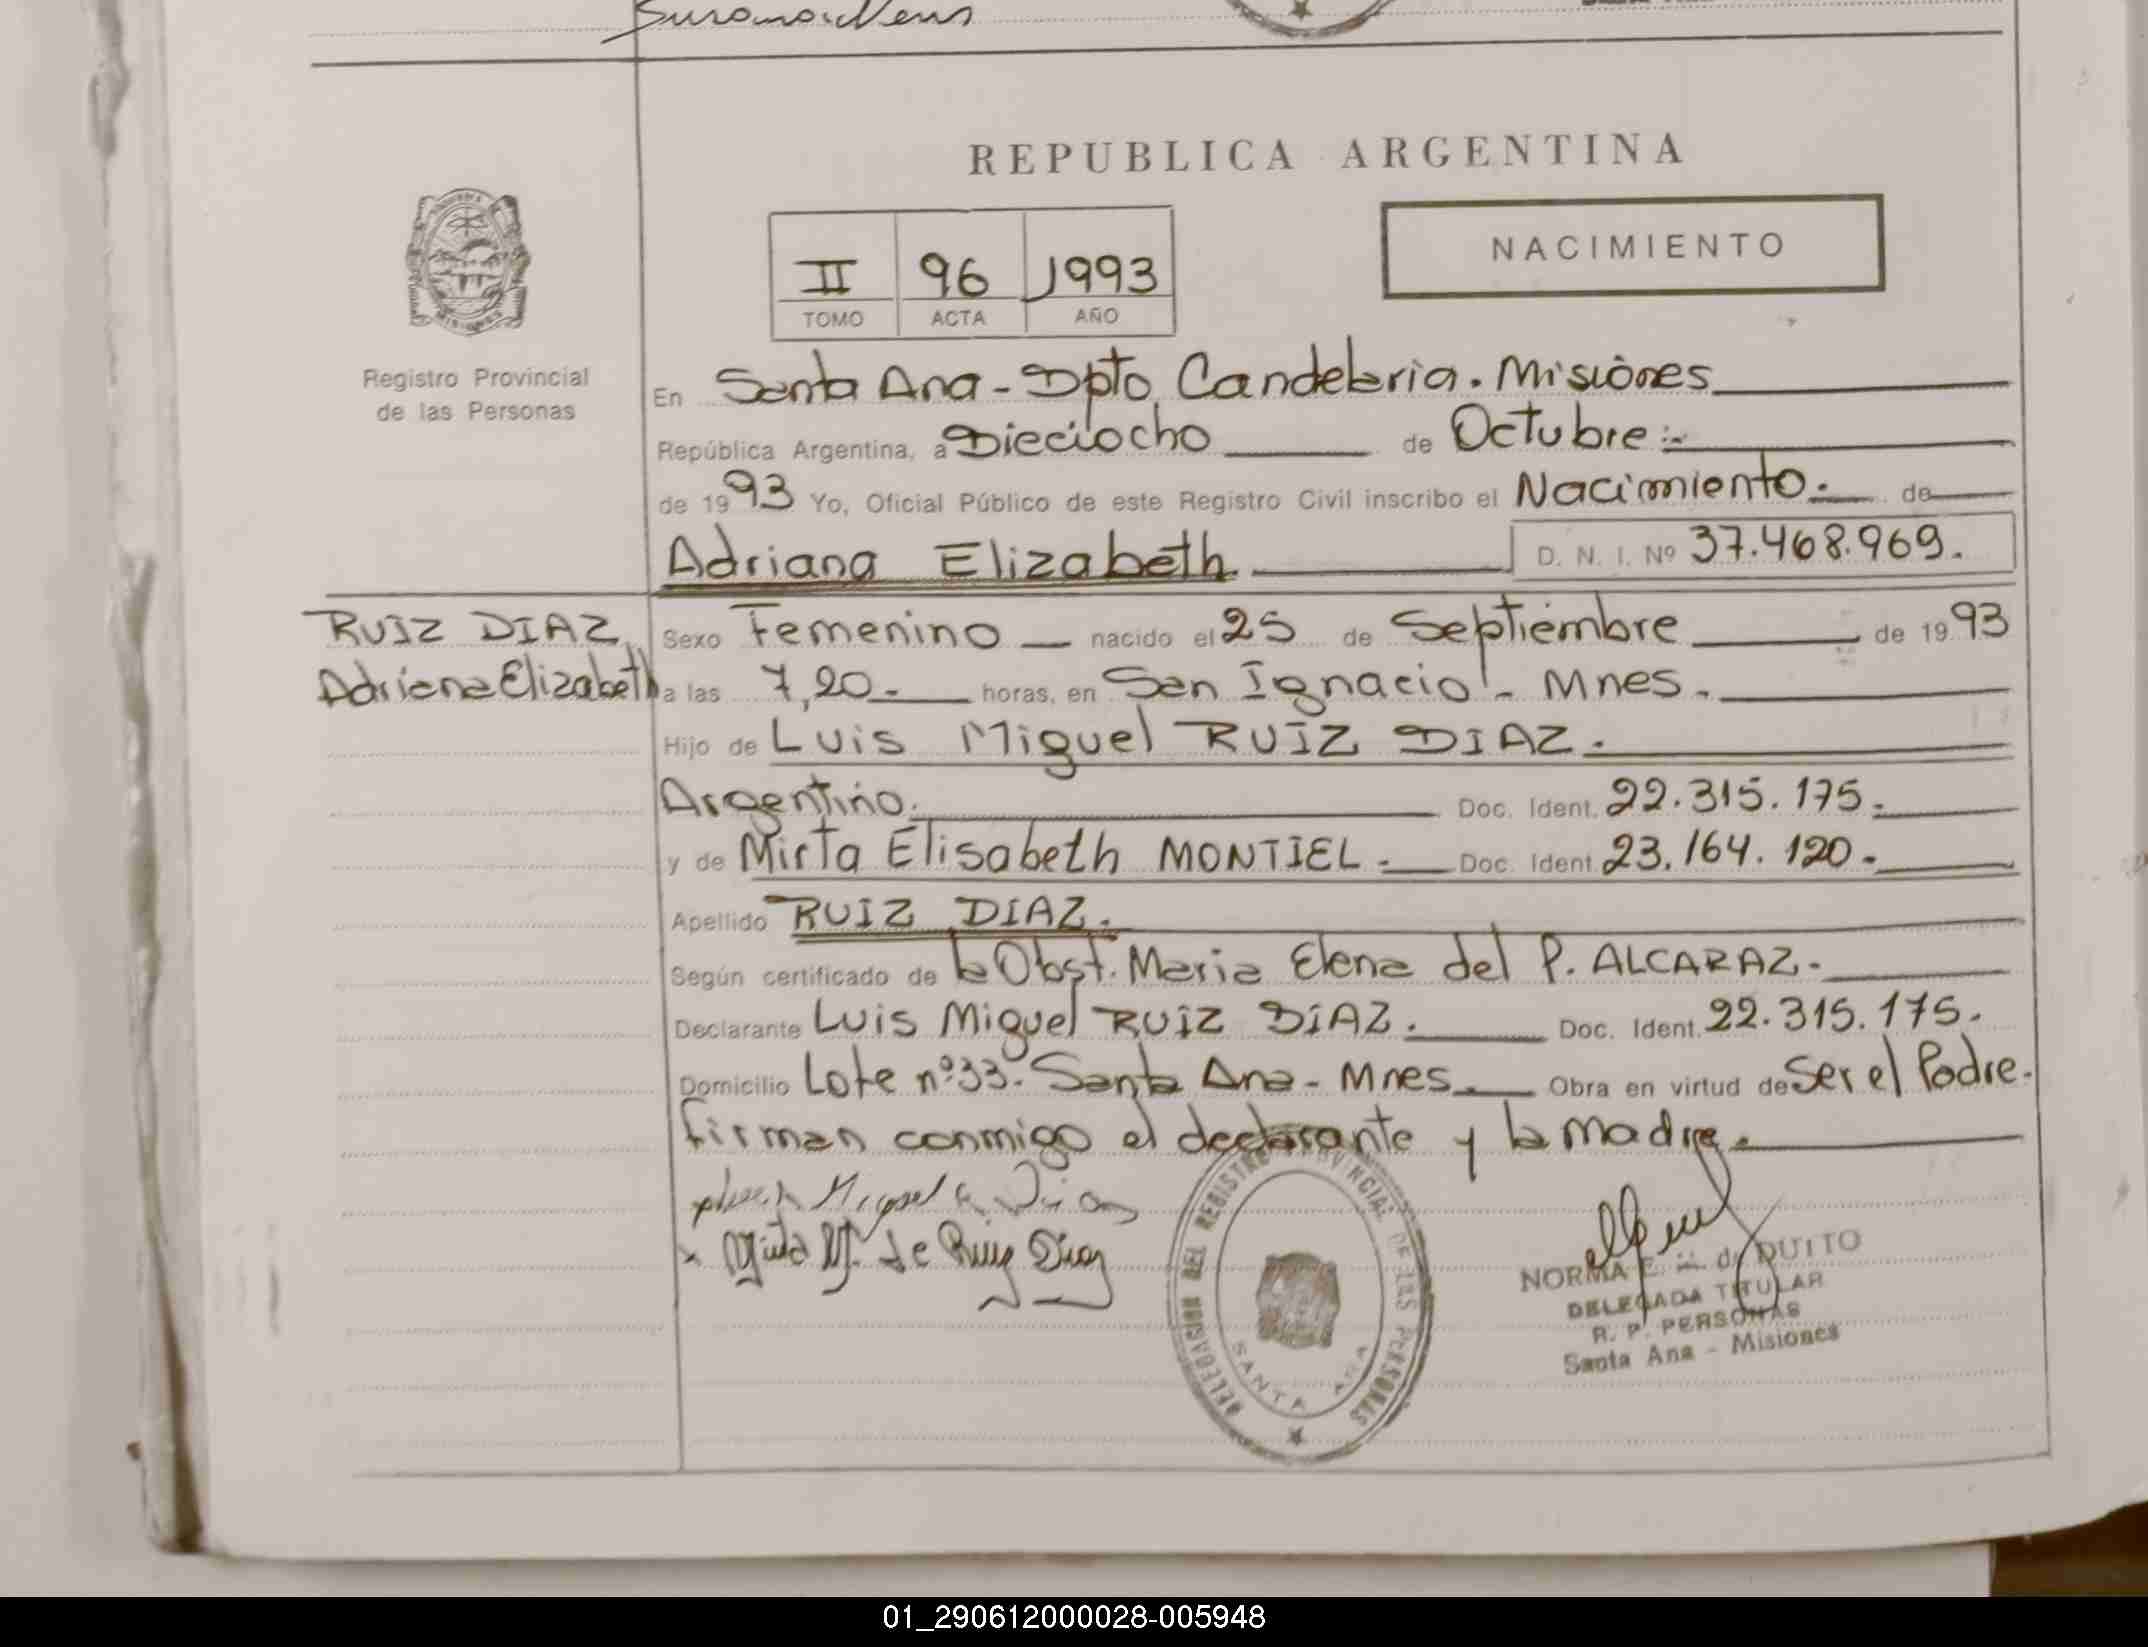 REPUBLICA ARGENTINA
NACIMIENTO
II 96 1993
TOMO ACTA AÑO
MISIONES
Registro Provincial
de las Personas
En Santa Ana - Dpto Candelaria. Misiones
República Argentina, a Dieciocho de Octubre
de 1993 Yo, Oficial Público de este Registro Civil inscribo el Nacimiento. de
Adriana Elizabeth D. N. I. Nº 37.468.969.
RUIZ DIAZ
Adriana Elizabeth
Sexo Femenino nacido el 25 de Septiembre de 1993
a las 7,20. horas, en San Ignacio - Mnes.
Hijo de Luis Miguel RUIZ DIAZ.
Argentino. Doc. Ident. 22.315.175.
y de Mirta Elisabeth MONTIEL. Doc. Ident. 23.164.120.
Apellido RUIZ DIAZ.
Según certificado de la Obst. Maria Elena del P. ALCARAZ.
Declarante Luis Miguel RUIZ DIAZ. Doc. Ident. 22.315.175.
Domicilio Lote nº 33. Santa Ana - Mnes. Obra en virtud de Ser el Padre.
firman conmigo el declarante y la madre.
Miguel R. Diaz
Mirta M. de Ruiz Diaz
DELEGACION DEL REGISTRO PROVINCIAL DE LAS PERSONAS
SANTA ANA
NORMA E. de DUITO
DELEGADA TITULAR
R. P. PERSONAS
Santa Ana - Misiones
01_290612000028-005948